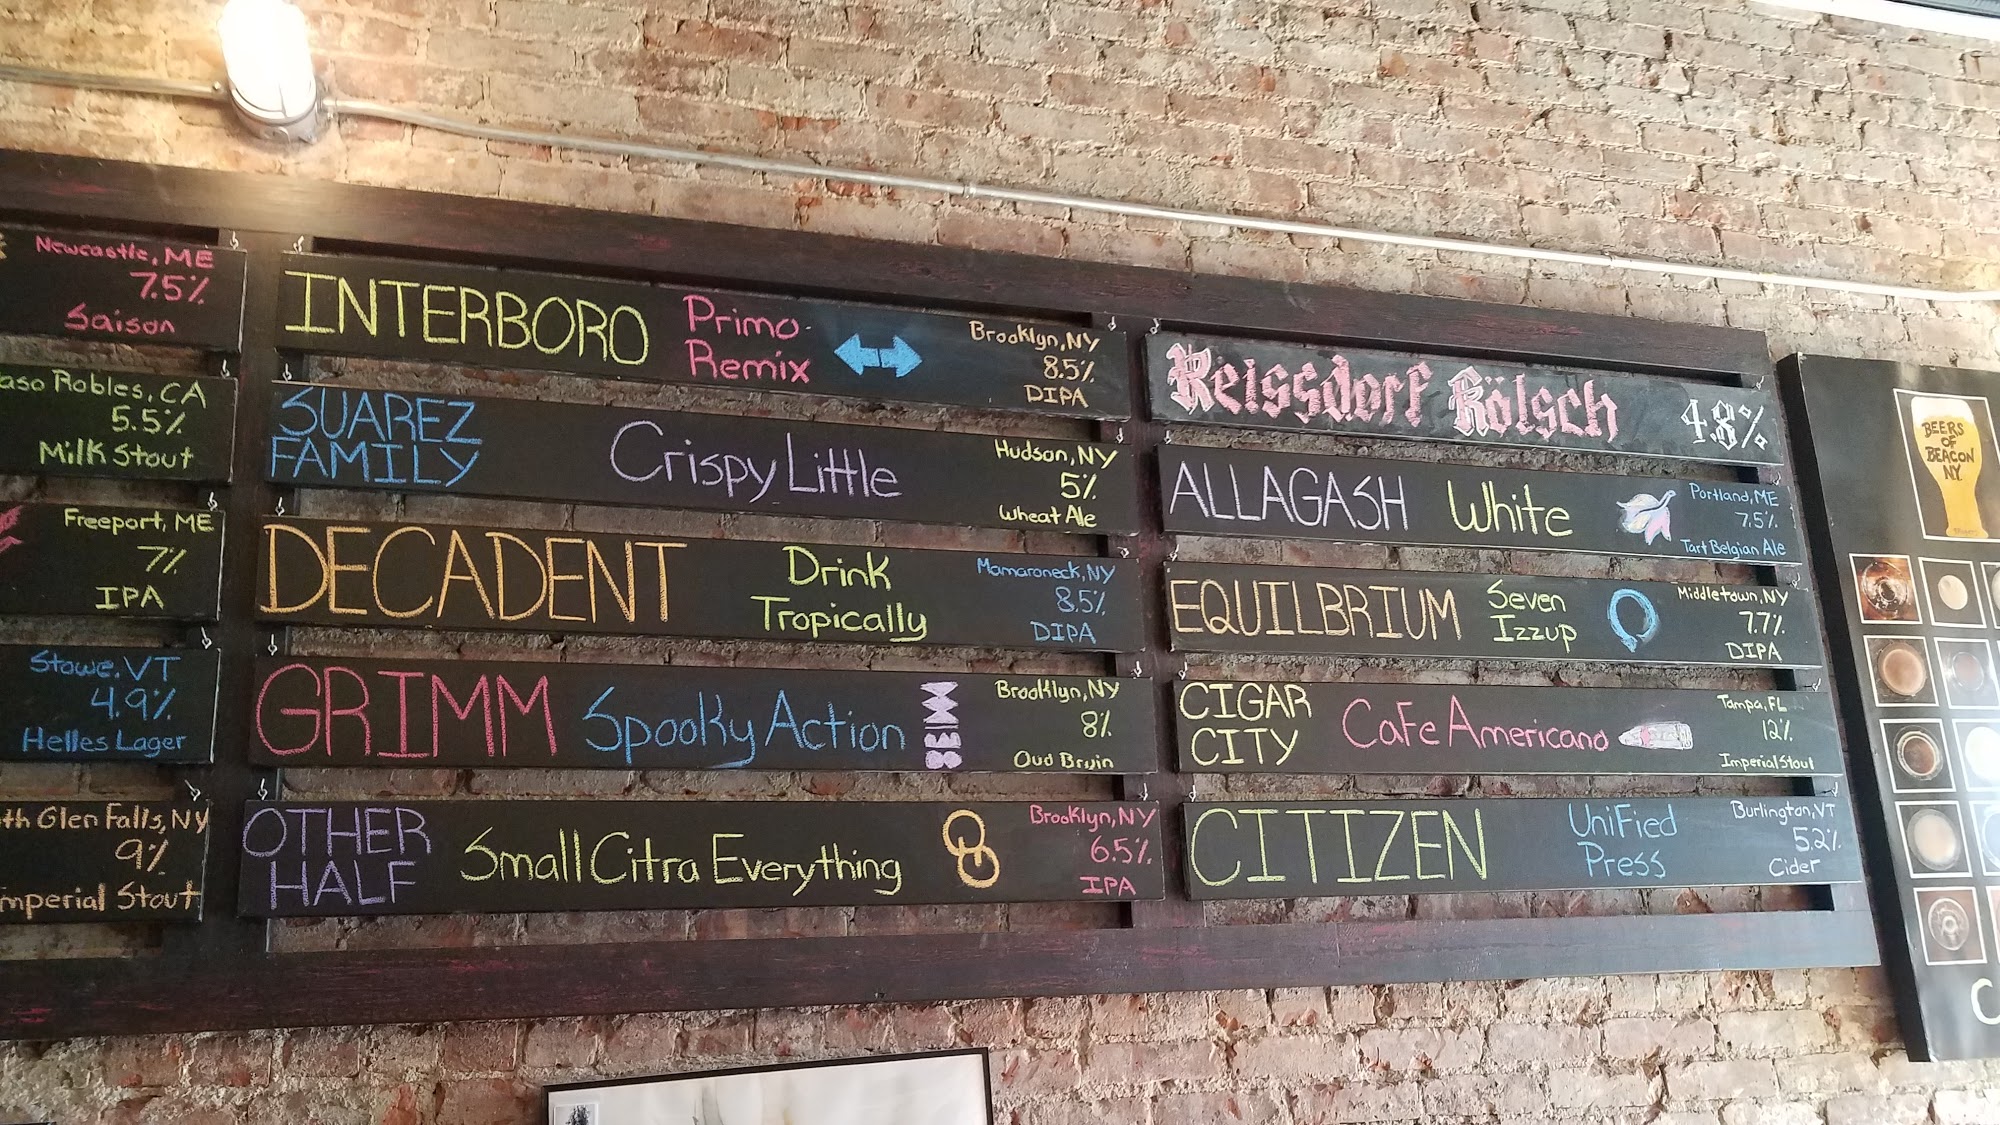 Newcastle, ME
7.5%
Saison
Robles, CA
5.5%
Milk Stout
Freeport, ME
7%
IPA
Stowe, VT
4.9%
Helles Lager
Glen Falls, NY
9%
Stout
INTERBORO
Primo
Remix
Brooklyn, NY
8.5%
DIPA
SUAREZ
FAMILY
Crispy Little
Hudson, NY
5%
Wheat Ale
DECADENT
Drink
Tropically
Mamaroneck, NY
8.5%
DIPA
GRIMM
Spooky Action
Brooklyn, NY
8%
Oud Bruin
OTHER
HALF
Small Citra Everything
Brooklyn, NY
6.5%
IPA
Reissdorf Kölsch
4.8%
ALLAGASH
White
Portland, ME
7.5%
Tart Belgian Ale
EQUILBRIUM
Seven
Izzup
Middletown, NY
7.7%
DIPA
CIGAR
CITY
CaFe Americano
Tampa, FL
12%
Imperial Stout
CITIZEN
UniFied
Press
Burlington, VT
5.2%
Cider
BEERS
OF
BEACON
NY